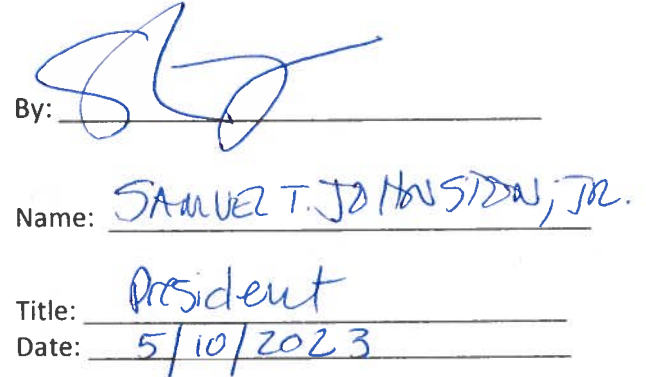 By:
Name: SAMUEL T. JOHNSTON, JR.
Title: President
Date: 5/10/2023